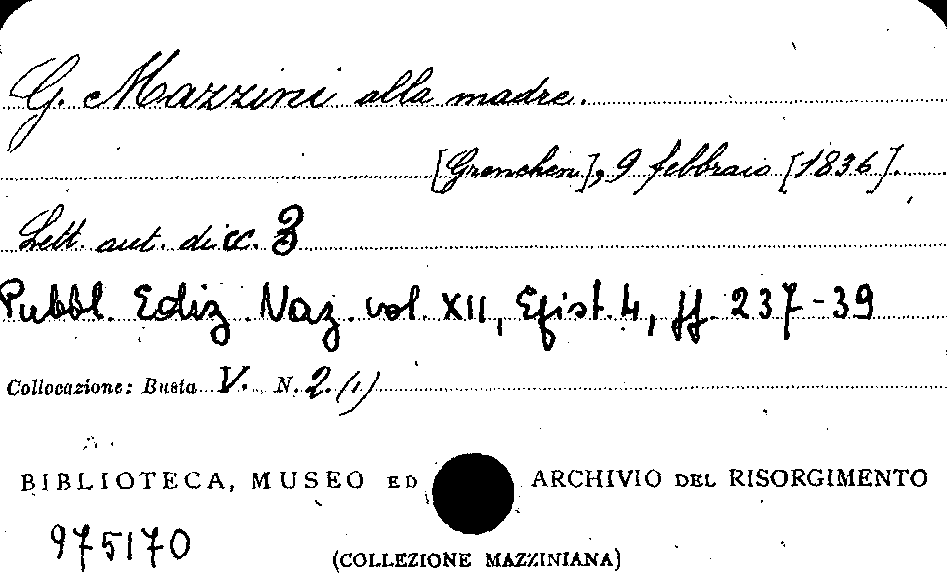 G. Mazzini alla madre.
[Grenchen], 9 febbraio [1836].
Lett. aut. di cc. 3
Pubbl. Ediz. Naz. vol. XII, Epist. 4, pp. 237-39
Collocazione: Busta V. N. 2. (1)
BIBLIOTECA, MUSEO ED ARCHIVIO DEL RISORGIMENTO
975170
(COLLEZIONE MAZZINIANA)